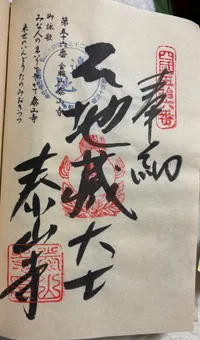 四国第五十六番
奉納
地蔵大士
泰山寺
第五十六番 金輪山 泰山寺
御詠歌
みな人の まいりてやがて 泰山寺
来世のいんどう たのみおきつつ